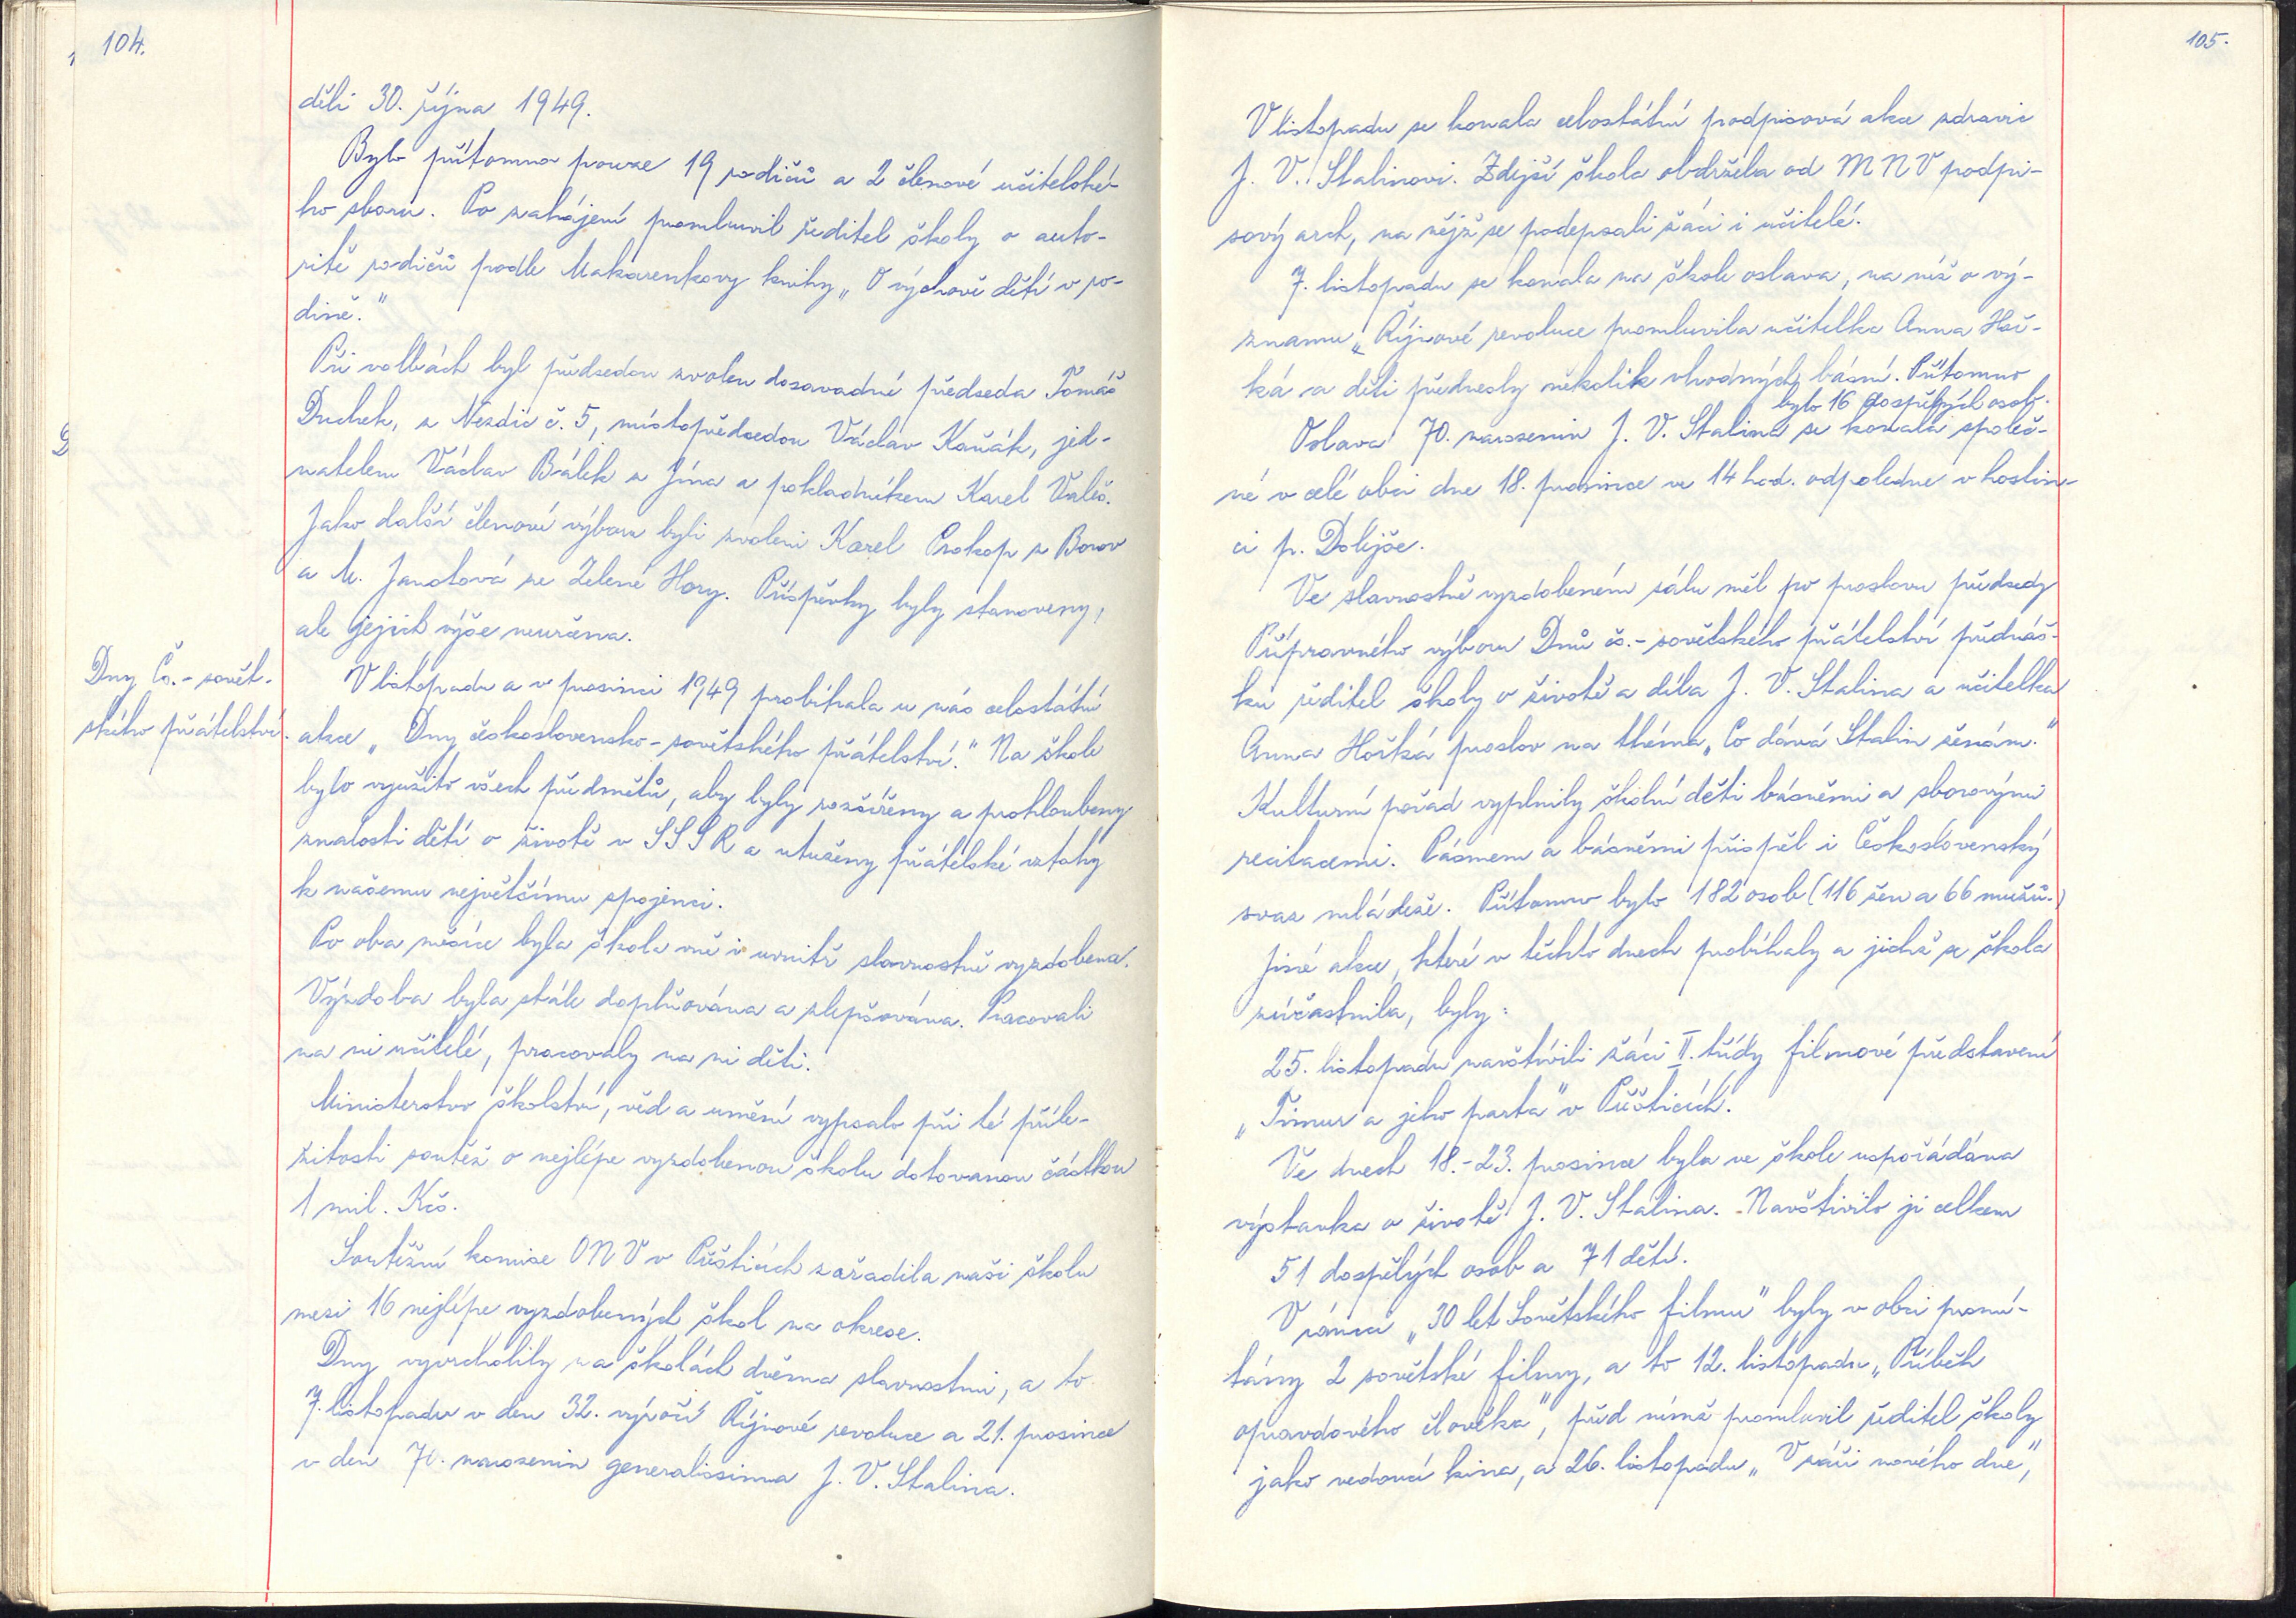 104.
děli 30. října 1949.
Bylo přítomno pouze 19 rodičů a 2 členové učitelské-
ho sboru. Po zahájení promluvil ředitel školy o auto-
ritě rodičů podle Makarenkovy knihy „O výchově dětí v ro-
dině."
Při volbách byl předsedou zvolen dosavadní předseda Tomáš
Duchek, z Nezdic č. 5, místopředsedou Václav Kaňák, jed-
natelem Václav Bálek z Jína a pokladníkem Karel Valeš.
Jako další členové výboru byli zvoleni Karel Prokop z Borov
a M. Janotová ze Zelené Hory. Příspěvky byly stanoveny,
ale jejich výše neurčena.
Dny Čs.-sovět-
ského přátelství.
V listopadu a v prosinci 1949 probíhala u nás celostátní
akce „Dny československo-sovětského přátelství." Na škole
bylo využito všech předmětů, aby byly rozšířeny a prohloubeny
znalosti dětí o životě v SSSR a utuženy přátelské vztahy
k našemu největšímu spojenci.
Po oba měsíce byla škola vně i uvnitř slavnostně vyzdobena.
Výzdoba byla stále doplňována a zlepšována. Pracovali
na ni učitelé, pracovaly na ni děti.
Ministerstvo školství, věd a umění vypsalo při té příle-
žitosti soutěž o nejlépe vyzdobenou školu dotovanou částkou
1 mil. Kčs.
Soutěžní komise ONV v Přešticích zařadila naši školu
mezi 16 nejlépe vyzdobených škol na okrese.
Dny vyvrcholily na školách dvěma slavnostmi, a to
7. listopadu v den 32. výročí Říjnové revoluce a 21. prosince
v den 70. narozenin generalissima J. V. Stalina.
105.
V listopadu se konala celostátní podpisová akce zdravic
J. V. Stalinovi. Zdejší škola obdržela od MNV podpi-
sový arch, na nějž se podepsali žáci i učitelé.
7. listopadu se konala na škole oslava, na níž o vý-
znamu Říjnové revoluce promluvila učitelka Anna Hoř-
ká a děti přednesly několik vhodných básní. Přítomno
bylo 16 dospělých osob.
Oslava 70. narozenin J. V. Stalina se konala společ-
ně v celé obci dne 18. prosince ve 14 hod. odpoledne v hostin-
ci p. Dolejše.
Ve slavnostně vyzdobeném sálu měl po proslovu předsedy
Přípravného výboru Dnů čs.-sovětského přátelství přednáš-
ku ředitel školy o životě a díla J. V. Stalina a učitelka
Anna Hořká proslov na théma „Co dává Stalin ženám."
Kulturní pořad vyplnily školní děti básněmi a sborovými
recitacemi. Pásmem a básněmi přispěl i Československý
svaz mládeže. Přítomno bylo 182 osob (116 žen a 66 mužů.)
Jiné akce, které v těchto dnech probíhaly a jichž se škola
zúčastnila, byly:
25. listopadu navštívili žáci II. třídy filmové představení
„Timur a jeho parta" v Přešticích.
Ve dnech 18.-23. prosince byla ve škole uspořádána
výstavka o životě J. V. Stalina. Navštívilo ji celkem
51 dospělých osob a 71 dětí.
V rámci „30 let Sovětského filmu" byly v obci promí-
tány 2 sovětské filmy, a to 12. listopadu „Příběh
opravdového člověka", před nímž promluvil ředitel školy
jako vedoucí kina, a 26. listopadu „V záři nového dne",